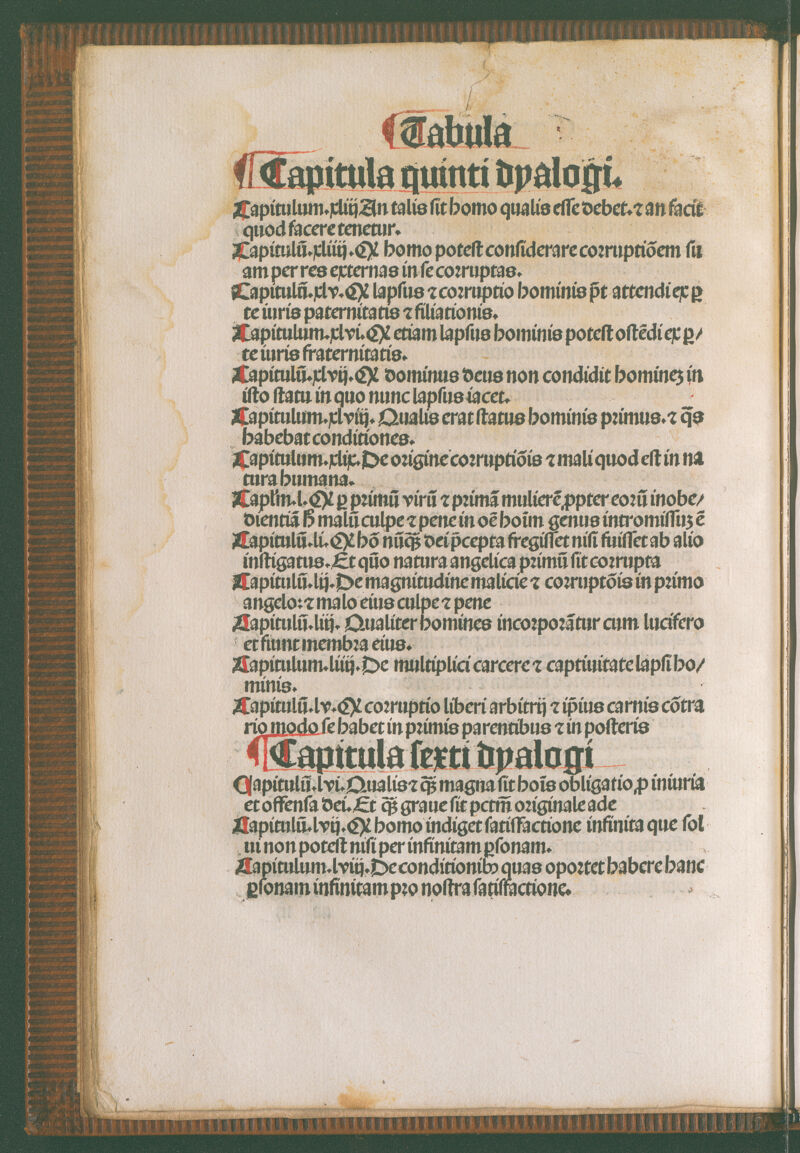 ¶Tabula
¶Capitula quinti dyalogi.
Capitulum.xliij An talis sit homo qualis esse debet.⁊ an facit
quod facere tenetur.
Capitulū.xliiij.Ꝙ homo potest considerare corruptiōem su
am per res externas in se corruptas.
Capitulū.xlv.Ꝙ lapsus ⁊ corruptio hominis p̄t attendi ex ꝑ
te iuris paternitatis ⁊ filiationis.
Capitulum.xlvi.Ꝙ etiam lapsus hominis potest ostēdi ex ꝑ/
te iuris fraternitatis.
Capitulū.xlvij.Ꝙ dominus deus non condidit homineꝫ in
isto statu in quo nunc lapsus iacet.
Capitulum.xlviij. Qualis erat status hominis primus.⁊ q̄s
habebat conditiones.
Capitulum.xlix.De origine corruptiōis ⁊ mali quod est in na
tura humana.
Caplm̄.l.Ꝙ ꝑ primū virū ⁊ primā mulierē ꝓpter eorū inobe/
dientiā h̄ malū culpe ⁊ pene in oē hoīm genus intromissuꝫ ē
Capitulū.li.Ꝙ hō nūꝙ̄ dei p̄cepta fregisset nisi fuisset ab alio
instigatus.Et qūo natura angelica primū sit corrupta
Capitulū.lij.De magnitudine malicie ⁊ corruptōis in primo
angelo:⁊ malo eius culpe ⁊ pene
Capitulū.liij. Qualiter homines incorporātur cum lucifero
et fiunt membra eius.
Capitulum.liiij.De multiplici carcere ⁊ captiuitate lapsi ho/
minis.
Capitulū.lv.Ꝙ corruptio liberi arbitrij ⁊ ip̄ius carnis cōtra
rio modo se habet in primis parentibus ⁊ in posteris
¶Capitula sexti dyalogi
Capitulū.lvi.Qualis ⁊ ꝙ̄ magna sit hoīs obligatio ꝓ iniuria
et offensa dei.Et ꝙ̄ graue sit pctm̄ originale ade
Capitulū.lvij.Ꝙ homo indiget satisfactione infinita que sol
ui non potest nisi per infinitam ꝑsonam.
Capitulum.lviij.De conditionibꝰ quas oportet habere hanc
ꝑsonam infinitam pro nostra satisfactione.